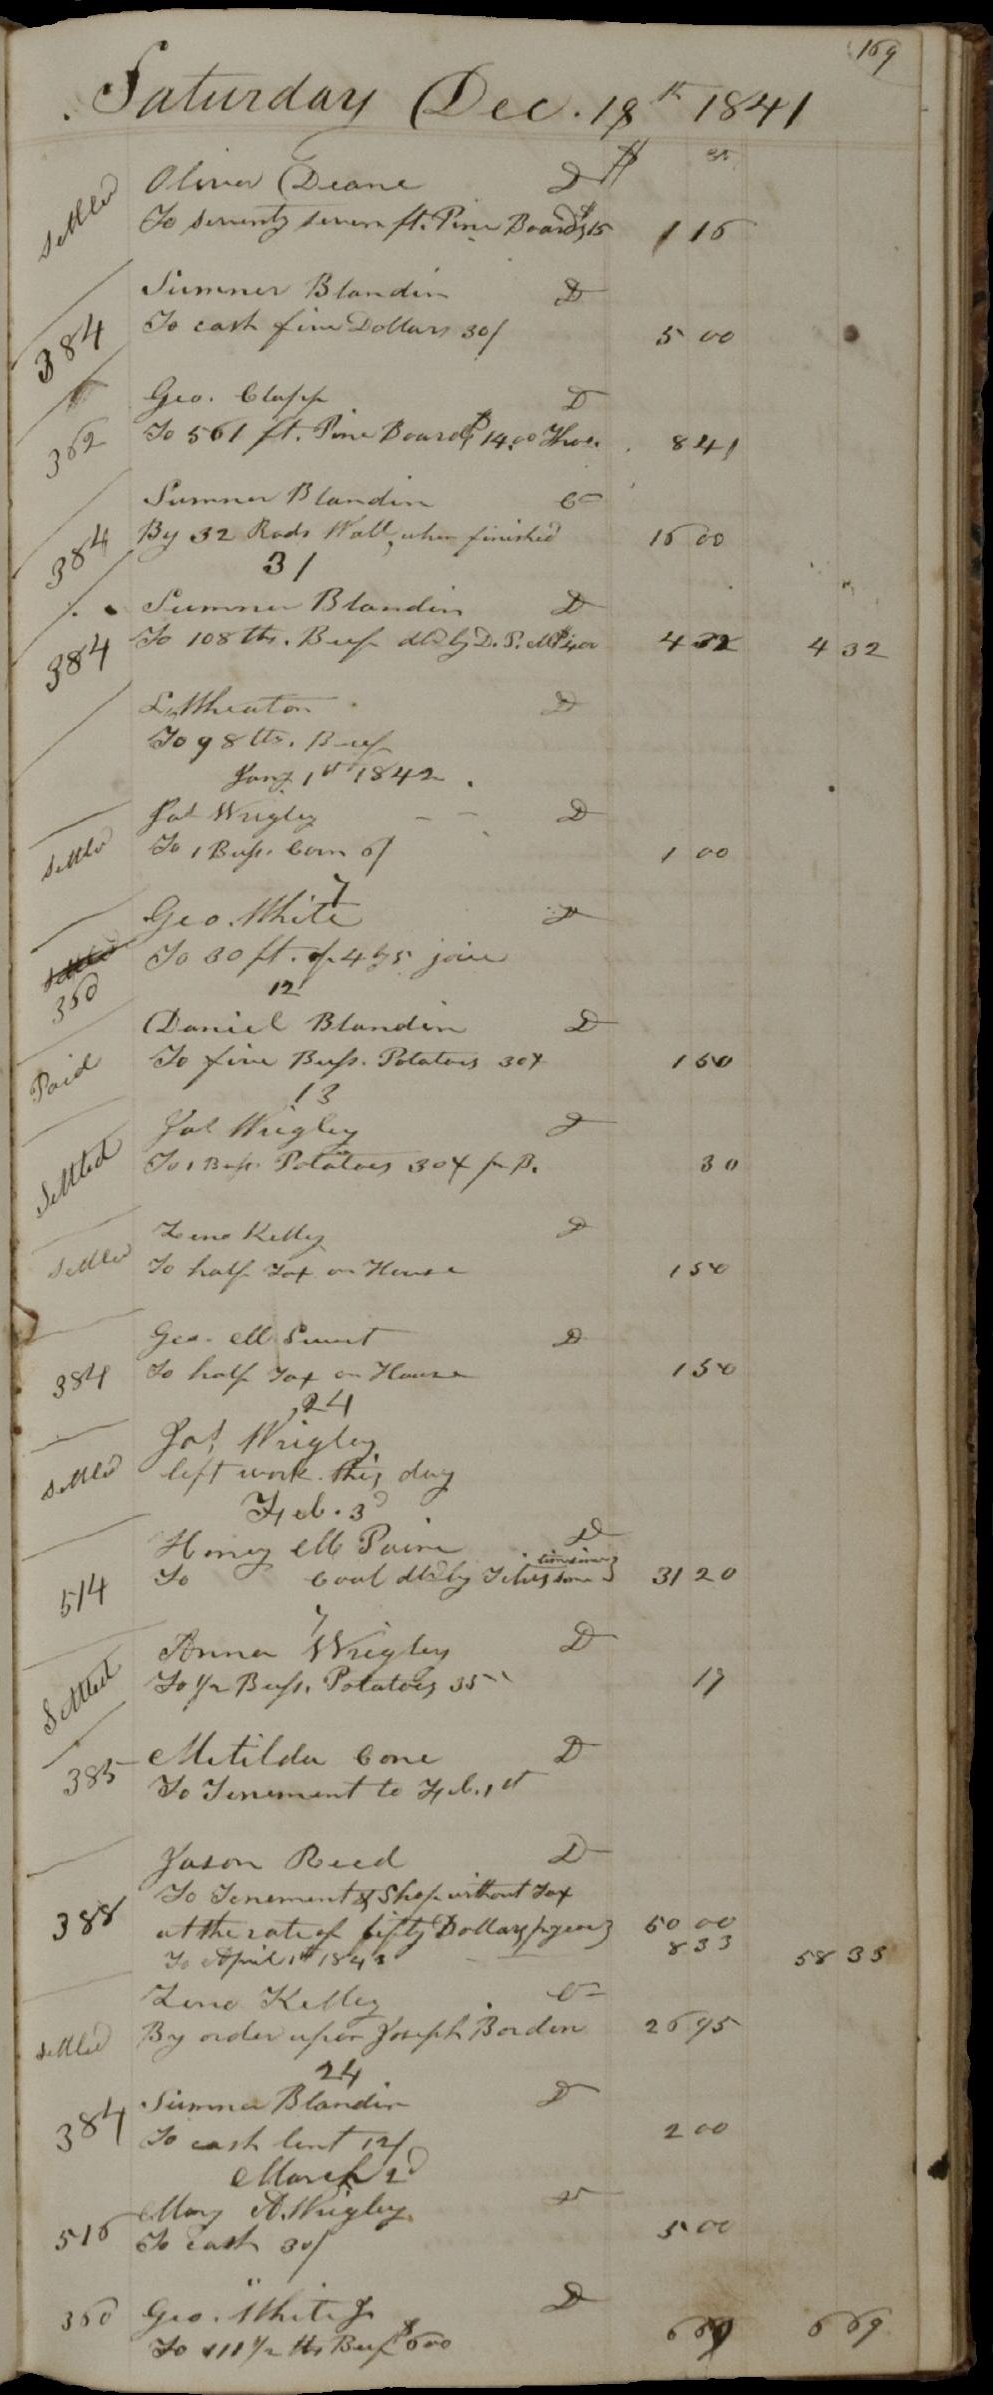 169
Saturday Dec. 18th 1841
settled Oliver Deane D $
To seventy seven ft. Pine Boards $15 1 16
384 Sumner Blandin D
To cash five Dollars 30/ 5 00
362 Geo. Clapp D
To 561 ft. Pine Boards $14.00 Thou. 8 41
384 Sumner Blandin Cr
By 32 Rods Wall, when finished 16 00
31
384 Sumner Blandin D
To 108 lbs. Beef dld by D. P. M $4.00 4 32 4 32
L. Wheaton D
To 98 lbs. Beef
Jany 1st 1842
settled Jas Wrigley D
To 1 Bush. Corn 6/ 1 00
7
settled 350 Geo. White D
To 30 ft. of 4 by 5 joice
12
Paid Daniel Blandin D
To five Bush. Potatoes 30 1 50
13
Settled Jas Wrigley D
To 1 Bush. Potatoes 30 pr B. 30
settled Zeno Kelley D
To half Tax on House 1 50
384 Geo. M. Sweet D
To half Tax on House 1 50
24
settled Jas Wrigley
left work this day
Feb. 3d
514 Henry M Paine D
To Coal dld by Titus 31 20
7
Settled Anna Wrigley D
To 1/2 Bush. Potatoes 35 17
385 Metilda Cone D
To Tenement to Feb. 1st
388 Jason Reed D
To Tenement & Shop without Tax
at the rate of fifty Dollars pr year 50 00
To April 1st 1843 8 33 58 33
settled Zeno Kelley Cr
By order upon Joseph Borden 26 95
24
384 Sumner Blandin D
To cash lent 12/ 2 00
March 2d
516 Mary A. Wrigley D
To cash 30/ 5 00
"
350 Geo. White Jr D
To 111 1/2 lbs Beef $6.00 6 69 6 69